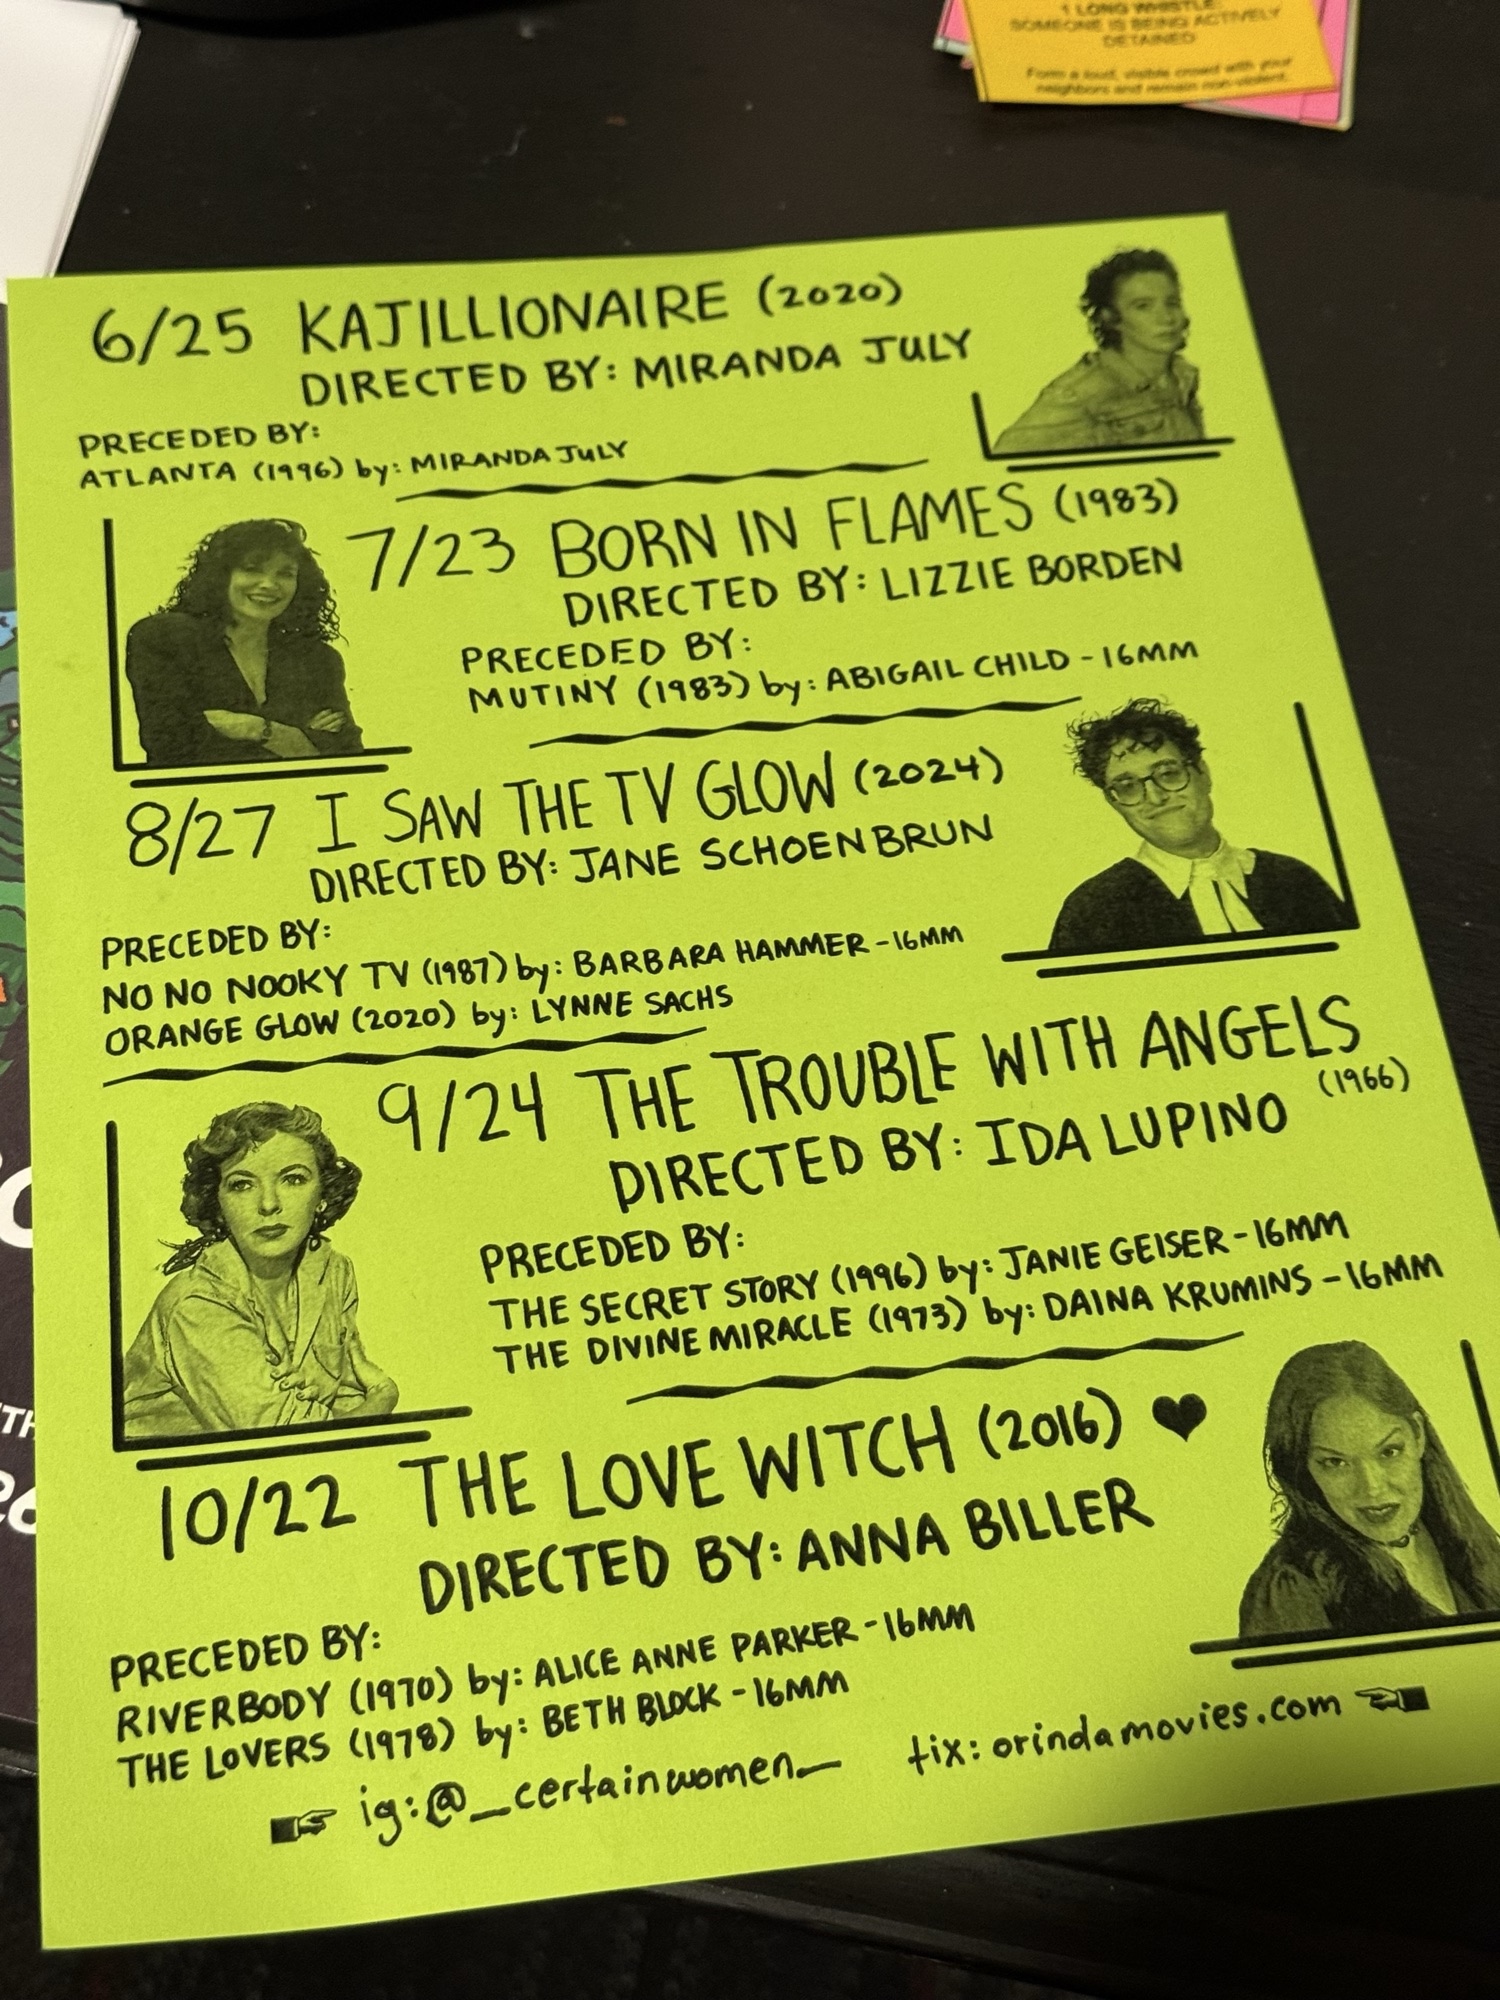 1 LONG WHISTLE:
SOMEONE IS BEING ACTIVELY
DETAINED
Form a loud, visible crowd with your
neighbors and remain non-violent.
6/25 KAJILLIONAIRE (2020)
DIRECTED BY: MIRANDA JULY
PRECEDED BY:
ATLANTA (1996) by: MIRANDA JULY
7/23 BORN IN FLAMES (1983)
DIRECTED BY: LIZZIE BORDEN
PRECEDED BY:
MUTINY (1983) by: ABIGAIL CHILD - 16MM
8/27 I SAW THE TV GLOW (2024)
DIRECTED BY: JANE SCHOENBRUN
PRECEDED BY:
NO NO NOOKY TV (1987) by: BARBARA HAMMER - 16MM
ORANGE GLOW (2020) by: LYNNE SACHS
9/24 THE TROUBLE WITH ANGELS
(1966)
DIRECTED BY: IDA LUPINO
PRECEDED BY:
THE SECRET STORY (1996) by: JANIE GEISER - 16MM
THE DIVINE MIRACLE (1973) by: DAINA KRUMINS - 16MM
10/22 THE LOVE WITCH (2016) ♥
DIRECTED BY: ANNA BILLER
PRECEDED BY:
RIVERBODY (1970) by: ALICE ANNE PARKER - 16MM
THE LOVERS (1978) by: BETH BLOCK - 16MM
ig: @_certainwomen_
tix: orindamovies.com